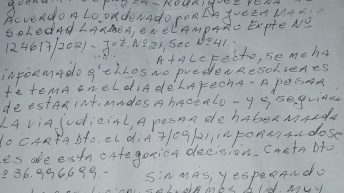 ACUERDO A LO ORDENADO POR LA JUEZA MARIA
SOLEDAD LARREA, EN EL AMPARO EXPTE Nº
124617/2021 - Juz. Nº 21, Sec Nº 41.
A TAL EFECTO, SE ME HA
INFORMADO q' ELLOS NO PUEDEN RESOLVER ES
TE TEMA EN EL DIA DE LA FECHA - A PESAR
DE ESTAR INTIMADOS A HACERLO - y q' SEGUIRÁN
LA VIA JUDICIAL, A PESAR DE HABER MANDA
CARTA DTO. EL DIA 7/09/21, INFORMANDOSE
LES DE ESTA CATEGORICA DECISIÓN. CARTA DTO
SIN MAS, Y ESPERANDO
MUY